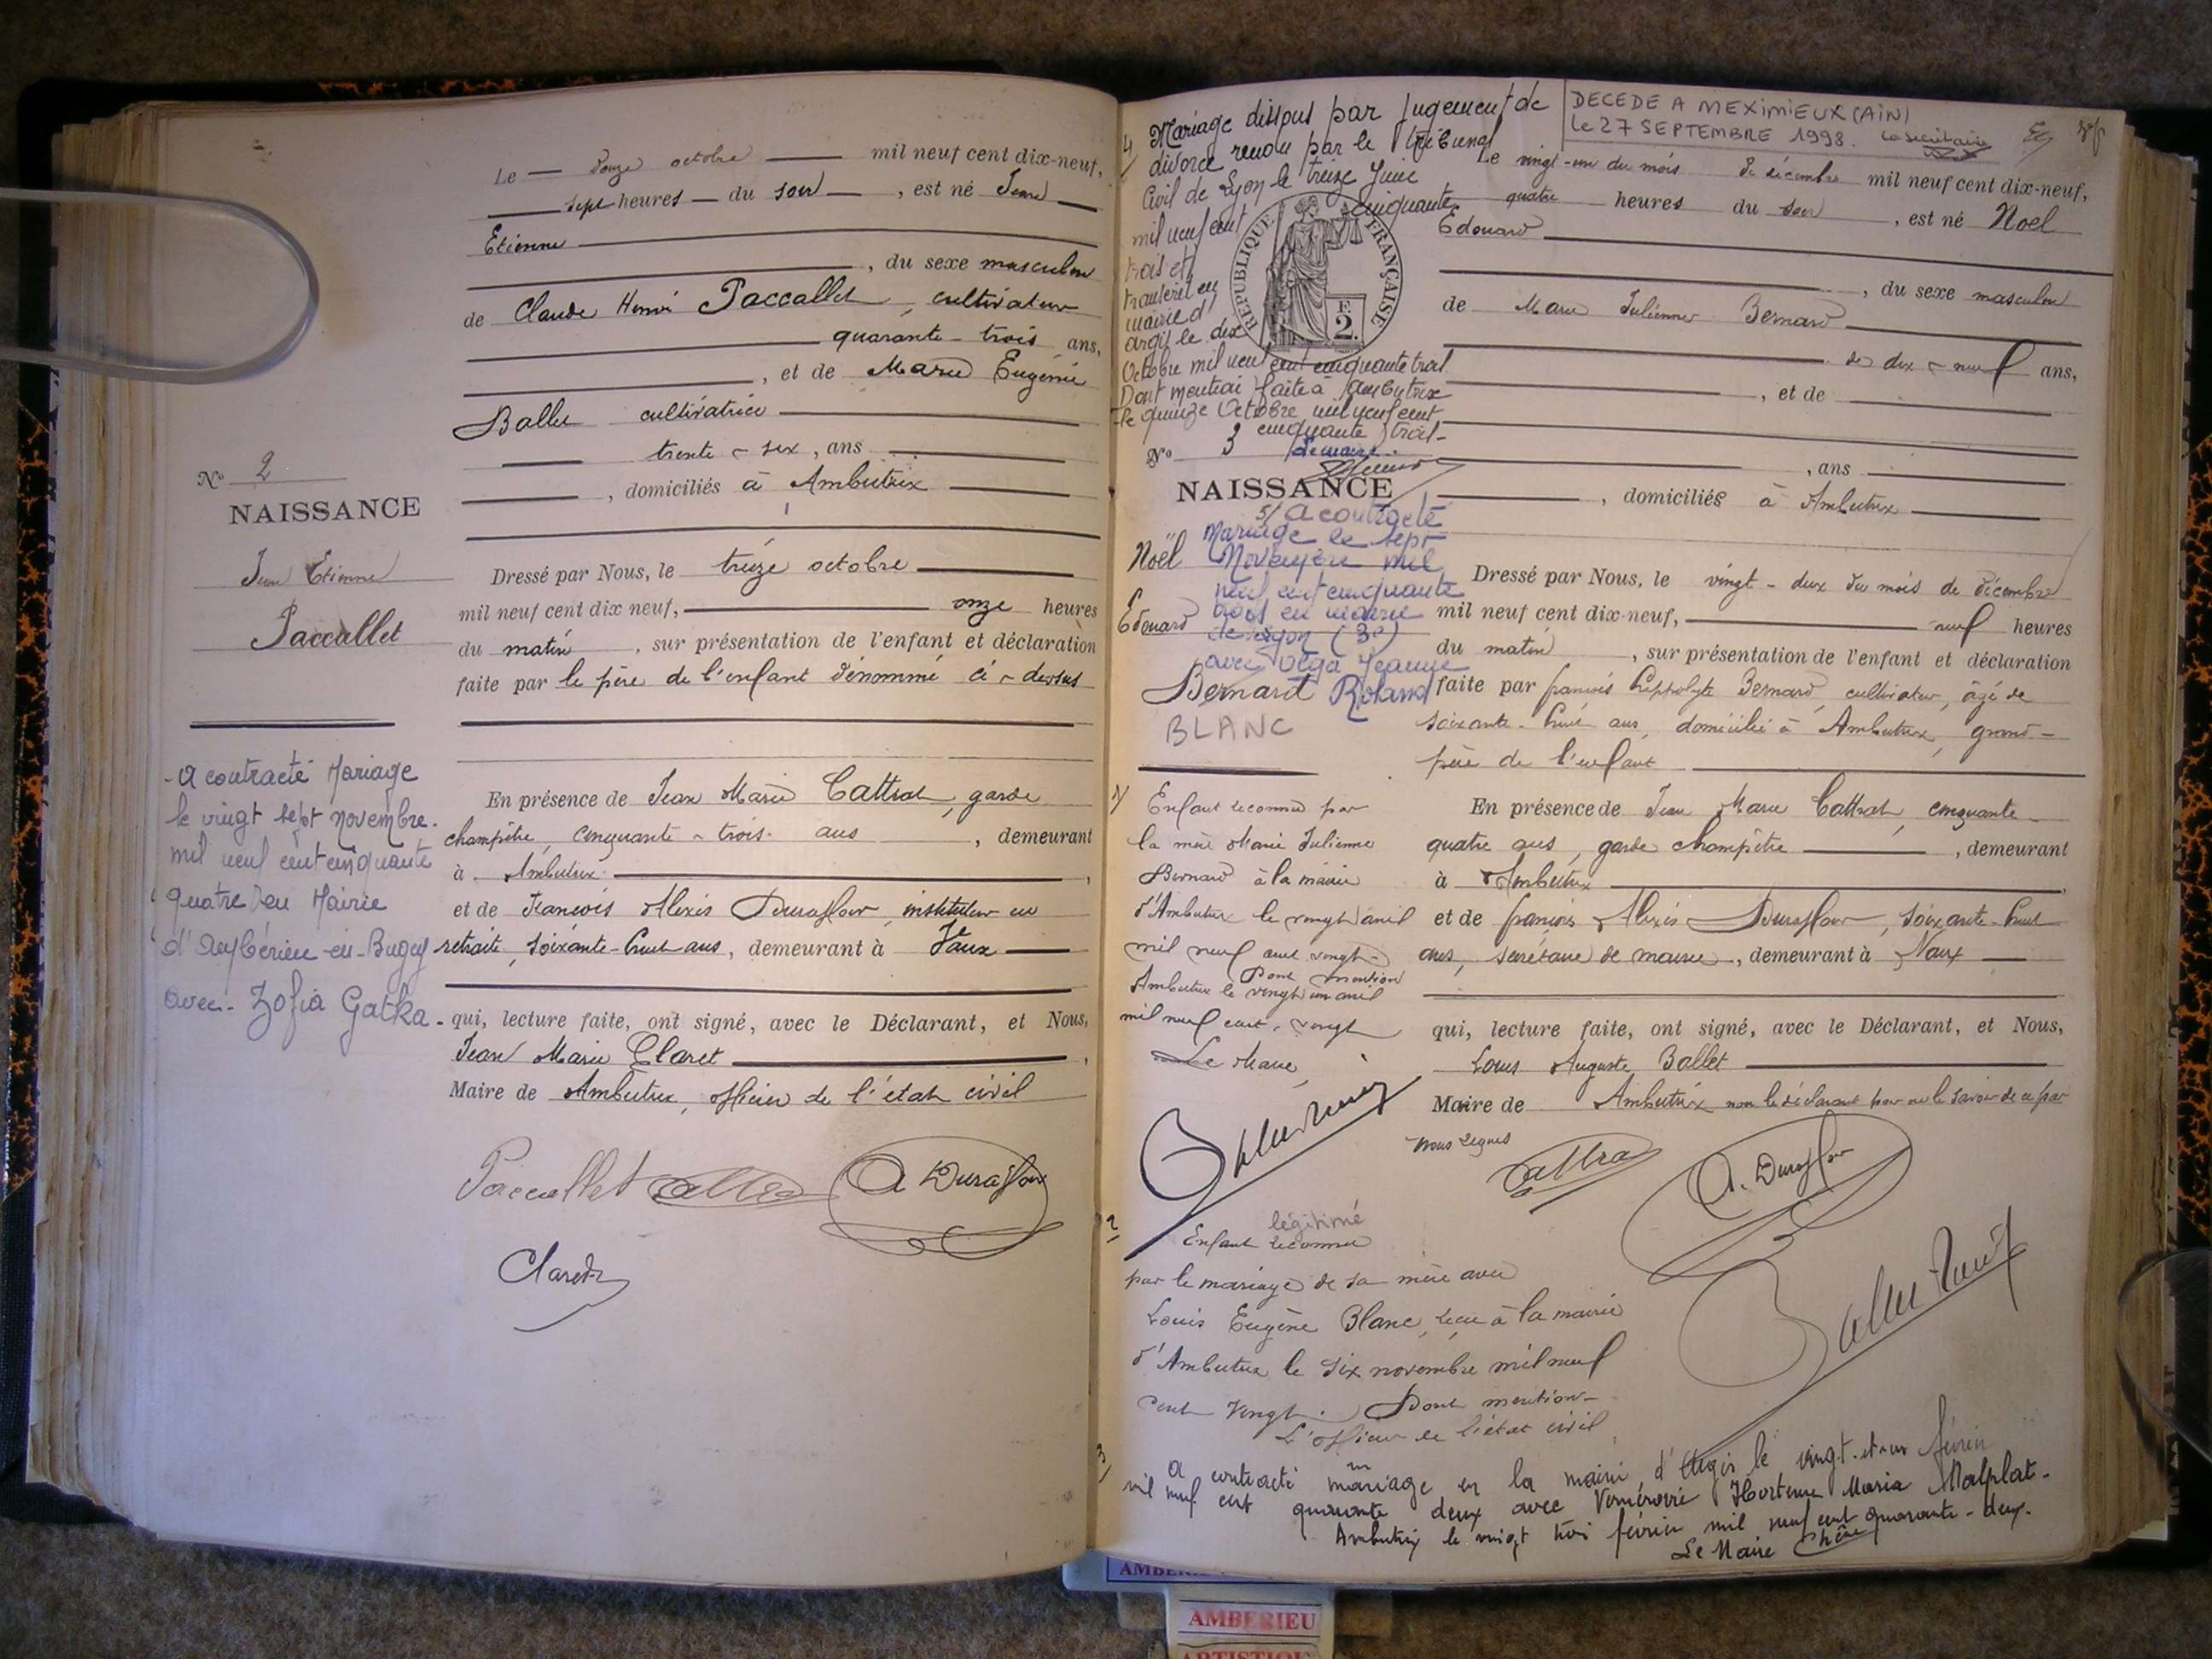 Le douze octobre mil neuf cent dix-neuf,
sept heures du soir, est né Jean
Etienne
, du sexe masculin
de Claude Henri Paccallet, cultivateur
quarante-trois ans,
, et de Marie Eugénie
Ballet cultivatrice
trente-six, ans
, domiciliés à Ambutrix
No 2
NAISSANCE
Jean Etienne
Paccallet
Dressé par Nous, le treize octobre
mil neuf cent dix neuf, onze heures
du matin, sur présentation de l'enfant et déclaration
faite par le père de l'enfant dénommé ci-dessus
En présence de Jean Marie Cattrat, garde
champêtre, cinquante-trois ans, demeurant
à Ambutrix,
et de François Alexis Duraffour, instituteur en
retraite, soixante-huit ans, demeurant à Vaux
qui, lecture faite, ont signé, avec le Déclarant, et Nous,
Jean Marie Claret,
Maire de Ambutrix, officier de l'état civil
- a contracté Mariage
le vingt sept novembre
mil neuf cent cinquante
quatre en Mairie
d'Ambérieu-en-Bugey
avec Zofia Gatka
Paccallet
A Duraffour
Claret
DECEDE A MEXIMIEUX (AIN)
Le 27 SEPTEMBRE 1998. La secrétaire
4/ Mariage dissous par Jugement de
divorce rendu par le Tribunal
Civil de Lyon le treize Juin
mil neuf cent cinquante
trois et
transcrit en
mairie d'
argis le dix
Octobre mil neuf cent cinquante trois
Dont mention faite à Ambutrix
le quinze Octobre mil neuf cent
cinquante trois-
le maire.
REPUBLIQUE FRANÇAISE
F.
2.
Le vingt-un du mois de décembre mil neuf cent dix-neuf,
quatre heures du soir, est né Noel
Edouard
, du sexe masculin
de Marie Julienne Bernard
de dix-neuf ans,
, et de
, ans
, domiciliés à Ambutrix
No 3
NAISSANCE
Noël
Edouard
Bernard
BLANC
5/ a contracté
Mariage le sept
Novembre mil
neuf cent cinquante
trois en mairie
de Lyon (3e)
avec Olga Jeanne
Roland
Dressé par Nous, le vingt-deux du mois de décembre
mil neuf cent dix-neuf, neuf heures
du matin, sur présentation de l'enfant et déclaration
faite par françois hippolyte Bernard, cultivateur, âgé de
soixante-huit ans, domicilié à Ambutrix, grand-
père de l'enfant
En présence de Jean Marie Cattrat, cinquante-
quatre ans, garde champêtre, demeurant
à Ambutrix,
et de françois Alexis Duraffour, soixante-huit
ans, secrétaire de mairie, demeurant à Vaux
qui, lecture faite, ont signé, avec le Déclarant, et Nous,
Louis Auguste Ballet
Maire de Ambutrix non le déclarant pour ne le savoir de ce par
nous requis
1/ Enfant reconnu par
la mère Marie Julienne
Bernard à la mairie
d'Ambutrix le vingt avril
mil neuf cent vingt-
Dont mention
Ambutrix le vingt un avril
mil neuf cent vingt
Le Maire,
Cattra
A. Duraffour
2/ légitimé
Enfant reconnu
par le mariage de sa mère avec
Louis Eugène Blanc, reçu à la mairie
d'Ambutrix le six novembre mil neuf
cent vingt. Dont mention-
L'officier de l'état civil
3/ a contracté mariage en la mairie d'Argis le vingt-et-un février
mil neuf cent quarante deux avec Hortense Maria Malplat-
Ambutrix le vingt trois février mil neuf cent quarante-deux.
Le Maire Chêne
AMBERIEU